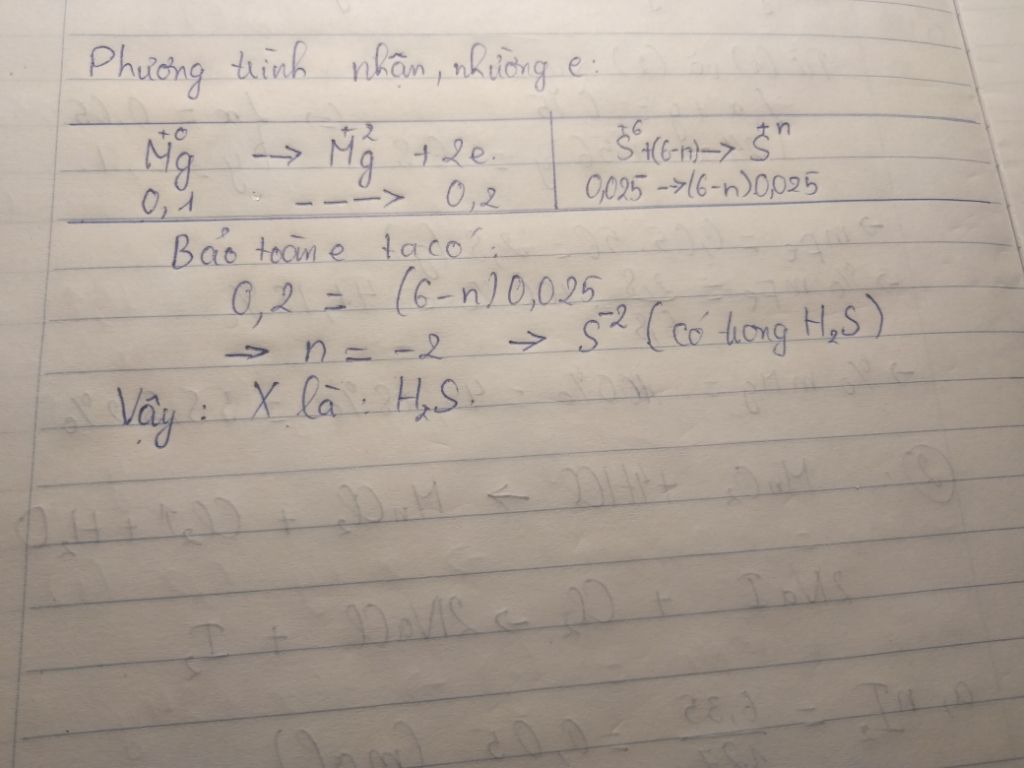 Phương trình nhận, nhường e:
+0 +2
Mg --> Mg + 2e.
0,1 ----> 0,2
+6 +n
S +(6-n)--> S
0,025 ->(6-n)0,025
Bảo toàn e ta có:
0,2 = (6-n)0,025
-> n = -2 -> S⁻² (có trong H₂S)
Vậy: X là: H₂S.